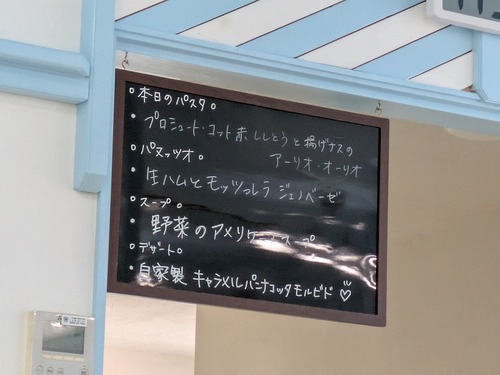 本日のパスタ。
プロシュート・コット赤ししとうと揚げナスの
アーリオ・オーリオ
パヌッツオ。
生ハムとモッツァレラ ジェノベーゼ
スープ。
野菜のアメリケーヌスープ
デザート。
自家製 キャラメルパンナコッタモルビド♡